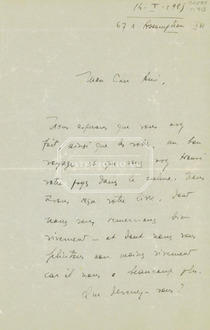 67 r Assomption
Mon Cher Ami,
Nous espérons que vous avez
fait, ainsi que les vôtres, un bon
voyage et que vous avez trouvé
votre pays dans le calme. Nous
avons reçu votre livre, dont
nous vous remercions bien
vivement — et dont nous vous
félicitons non moins vivement
car il nous a beaucoup plu.
Que devenez-vous ?